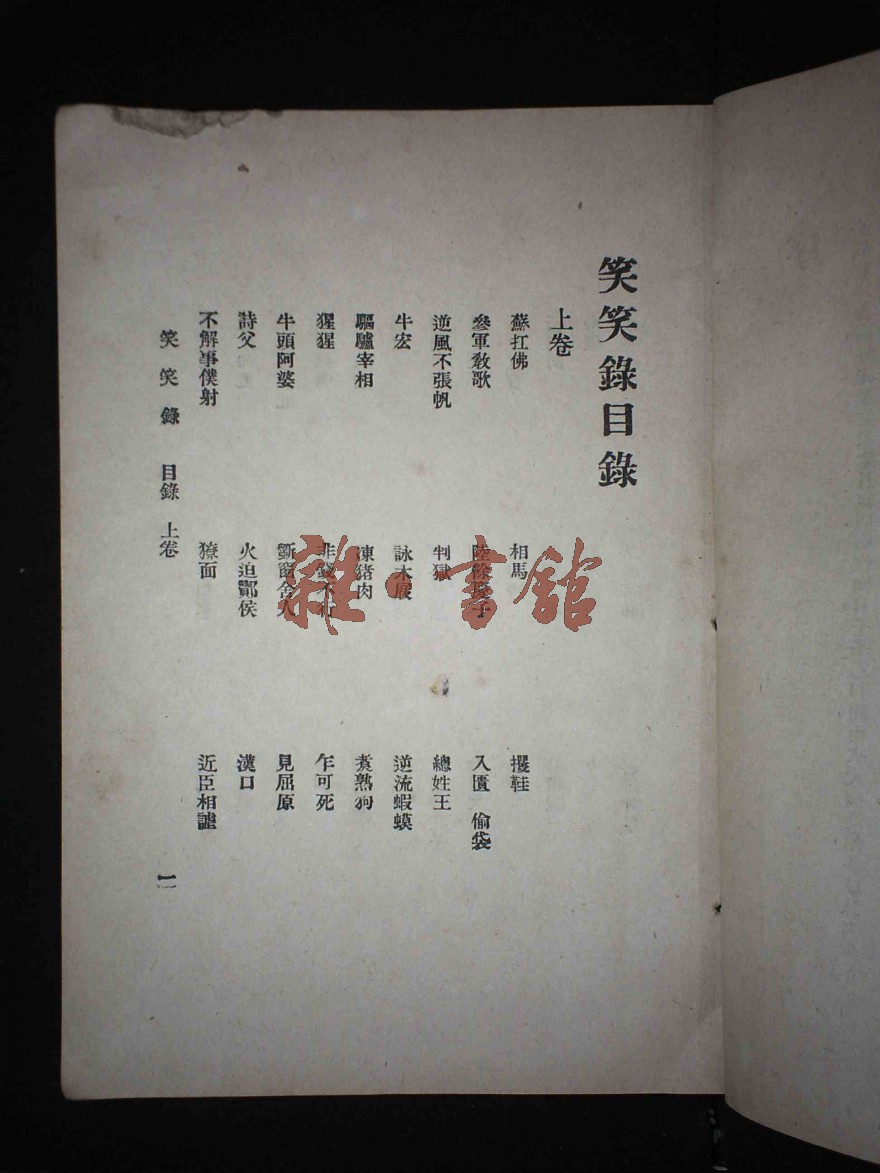 笑笑錄目錄
上卷
蘇扛佛 相馬 攫鞋
參軍敎歌 入匱 偷袋
逆風不張帆 判獄 總姓王
牛宏 詠木屐 逆流蝦蟆
驅驢宰相 凍豬肉 煮熟狗
猩猩 乍可死
牛頭阿婆 斵窗舍人 見屈原
詩父 火迫酇侯 漢口
不解事僕射 獠面 近臣相謔
笑笑錄 目錄 上卷 一
雜·書館